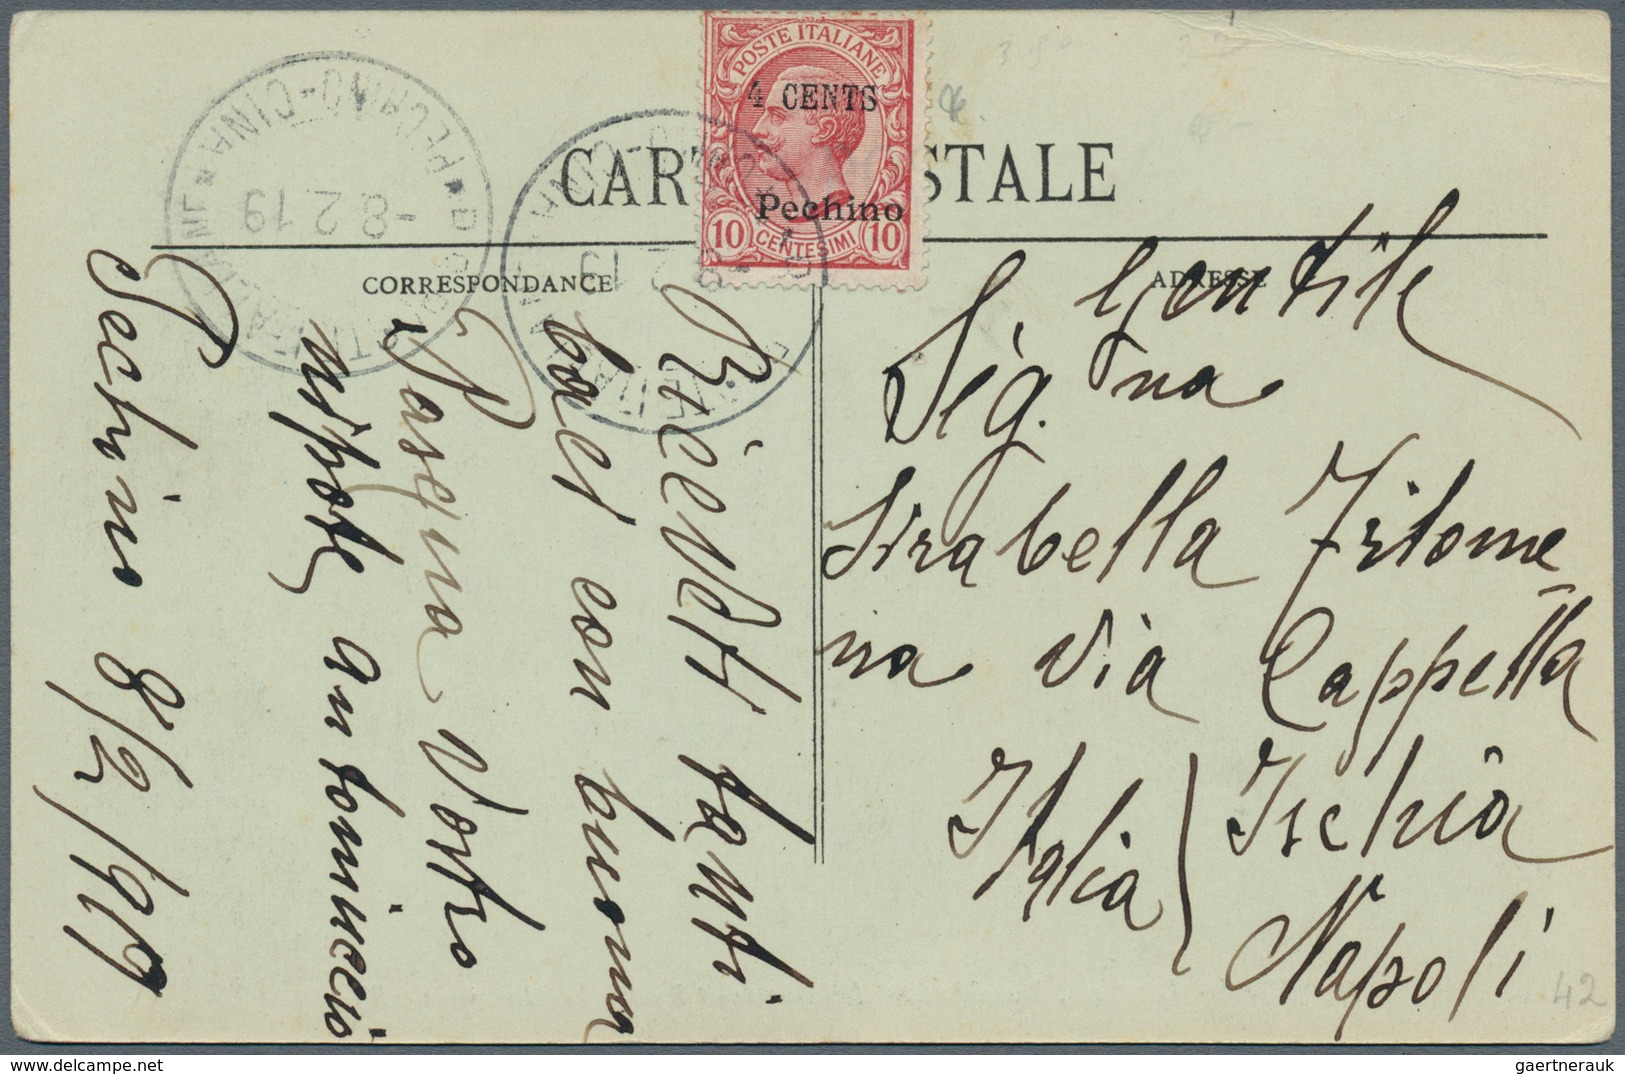 POSTE ITALIANE
4 CENTS
Pechino
10 CENTESIMI 10
CARTE POSTALE
CORRESPONDANCE
ADRESSE
PECHINO-CINA
-8.2.19
Ricevete tanti
baci con buona
Pasqua Vostro
nipote antonuccio
Pechino 8/2/1919
Gentile
Sig.na
Sirabella Filome
na Via Cappella
Italia Ischia
Napoli
42
gaertnerauk